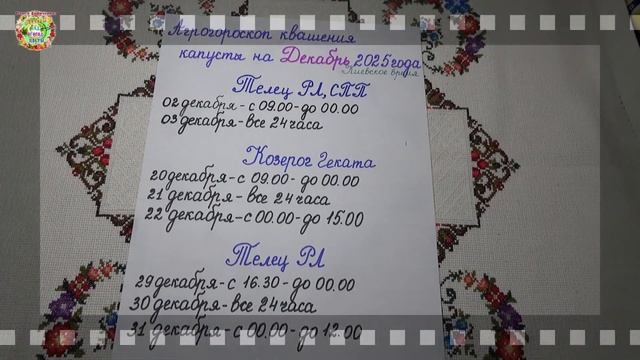 Агрогороскоп квашения
капусты на Декабрь 2025 года
Киевское время
Телец РЛ, СПП
02 декабря - с 09.00 - до 00.00
03 декабря - все 24 часа
Козерог Геката
20 декабря - с 09.00 - до 00.00
21 декабря - все 24 часа
22 декабря - с 00.00 - до 15.00
Телец РЛ
29 декабря - с 16.30 - до 00.00
30 декабря - все 24 часа
31 декабря - с 00.00 - до 12.00